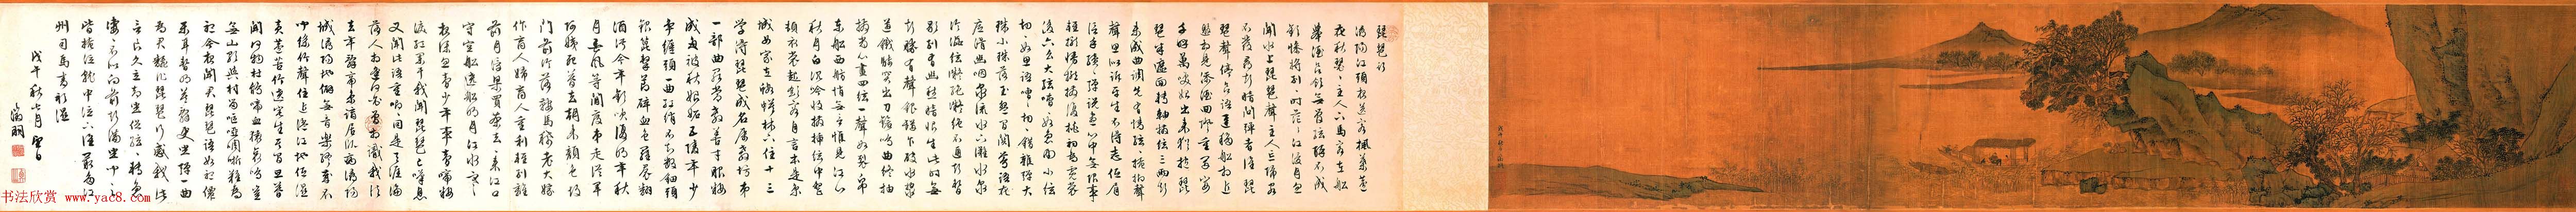 琵琶行
潯陽江頭夜送客楓葉荻
花秋瑟瑟主人下馬客在船
舉酒欲飲無管絃醉不成
歡慘將別別時茫茫江浸月忽
聞水上琵琶聲主人忘歸客
不發尋聲暗問彈者誰琵
琶聲停欲語遲移船相近
邀相見添酒回燈重開宴
千呼萬喚始出來猶抱琵
琶半遮面轉軸撥絃三兩聲
未成曲調先有情絃絃掩抑聲
聲思似訴平生不得志低眉
信手續續彈說盡心中無限事
輕攏慢撚抹復挑初為霓裳
後六么大絃嘈嘈如急雨小絃
切切如私語嘈嘈切切錯雜彈大
珠小珠落玉盤間關鶯語花
底滑幽咽泉流水下灘水泉
冷澀絃凝絕凝絕不通聲暫
歇別有幽愁暗恨生此時無
聲勝有聲銀瓶乍破水漿
迸鐵騎突出刀鎗鳴曲終抽
撥當心畫四絃一聲如裂帛
東船西舫悄無言惟見江心
秋月白沉吟收撥插絃中整
頓衣裳起斂容自言本是京
城女家在蝦蟆林下住十三
學得琵琶成名屬教坊第
一部曲罷常教善才服妝
成每被秋娘妬五陵年少
爭纏頭一曲紅綃不知數鈿頭
銀篦擊節碎血色羅裙翻
酒污今年歡笑復明年秋
月春風等閒度弟走從軍
阿姨死暮去朝來顏色故
門前冷落鞍馬稀老大嫁
作商人婦商人重利輕別離
前月浮梁買茶去去來江口
守空船遶船明月江水寒
夜深忽夢少年事夢啼妝
淚紅闌干我聞琵琶已嘆息
又聞此語重唧唧同是天涯淪
落人相逢何必曾相識我從
去年辭帝京謫居臥病潯陽
城潯陽地僻無音樂終歲不
聞絲竹聲住近湓江地低濕
黃蘆苦竹遶宅生其間旦暮
聞何物杜鵑啼血猿哀鳴豈
無山歌與村笛嘔啞嘲哳難為
聽今夜聞君琵琶語如聽仙
樂耳暫明莫辭更坐彈一曲
為君翻作琵琶行感我此
言良久立却坐促絃絃轉急
淒淒不似向前聲滿座聞之
皆掩泣就中泣下誰多江
州司馬青衫濕
戊午秋七月望日
書法欣賞 www.yac8.com